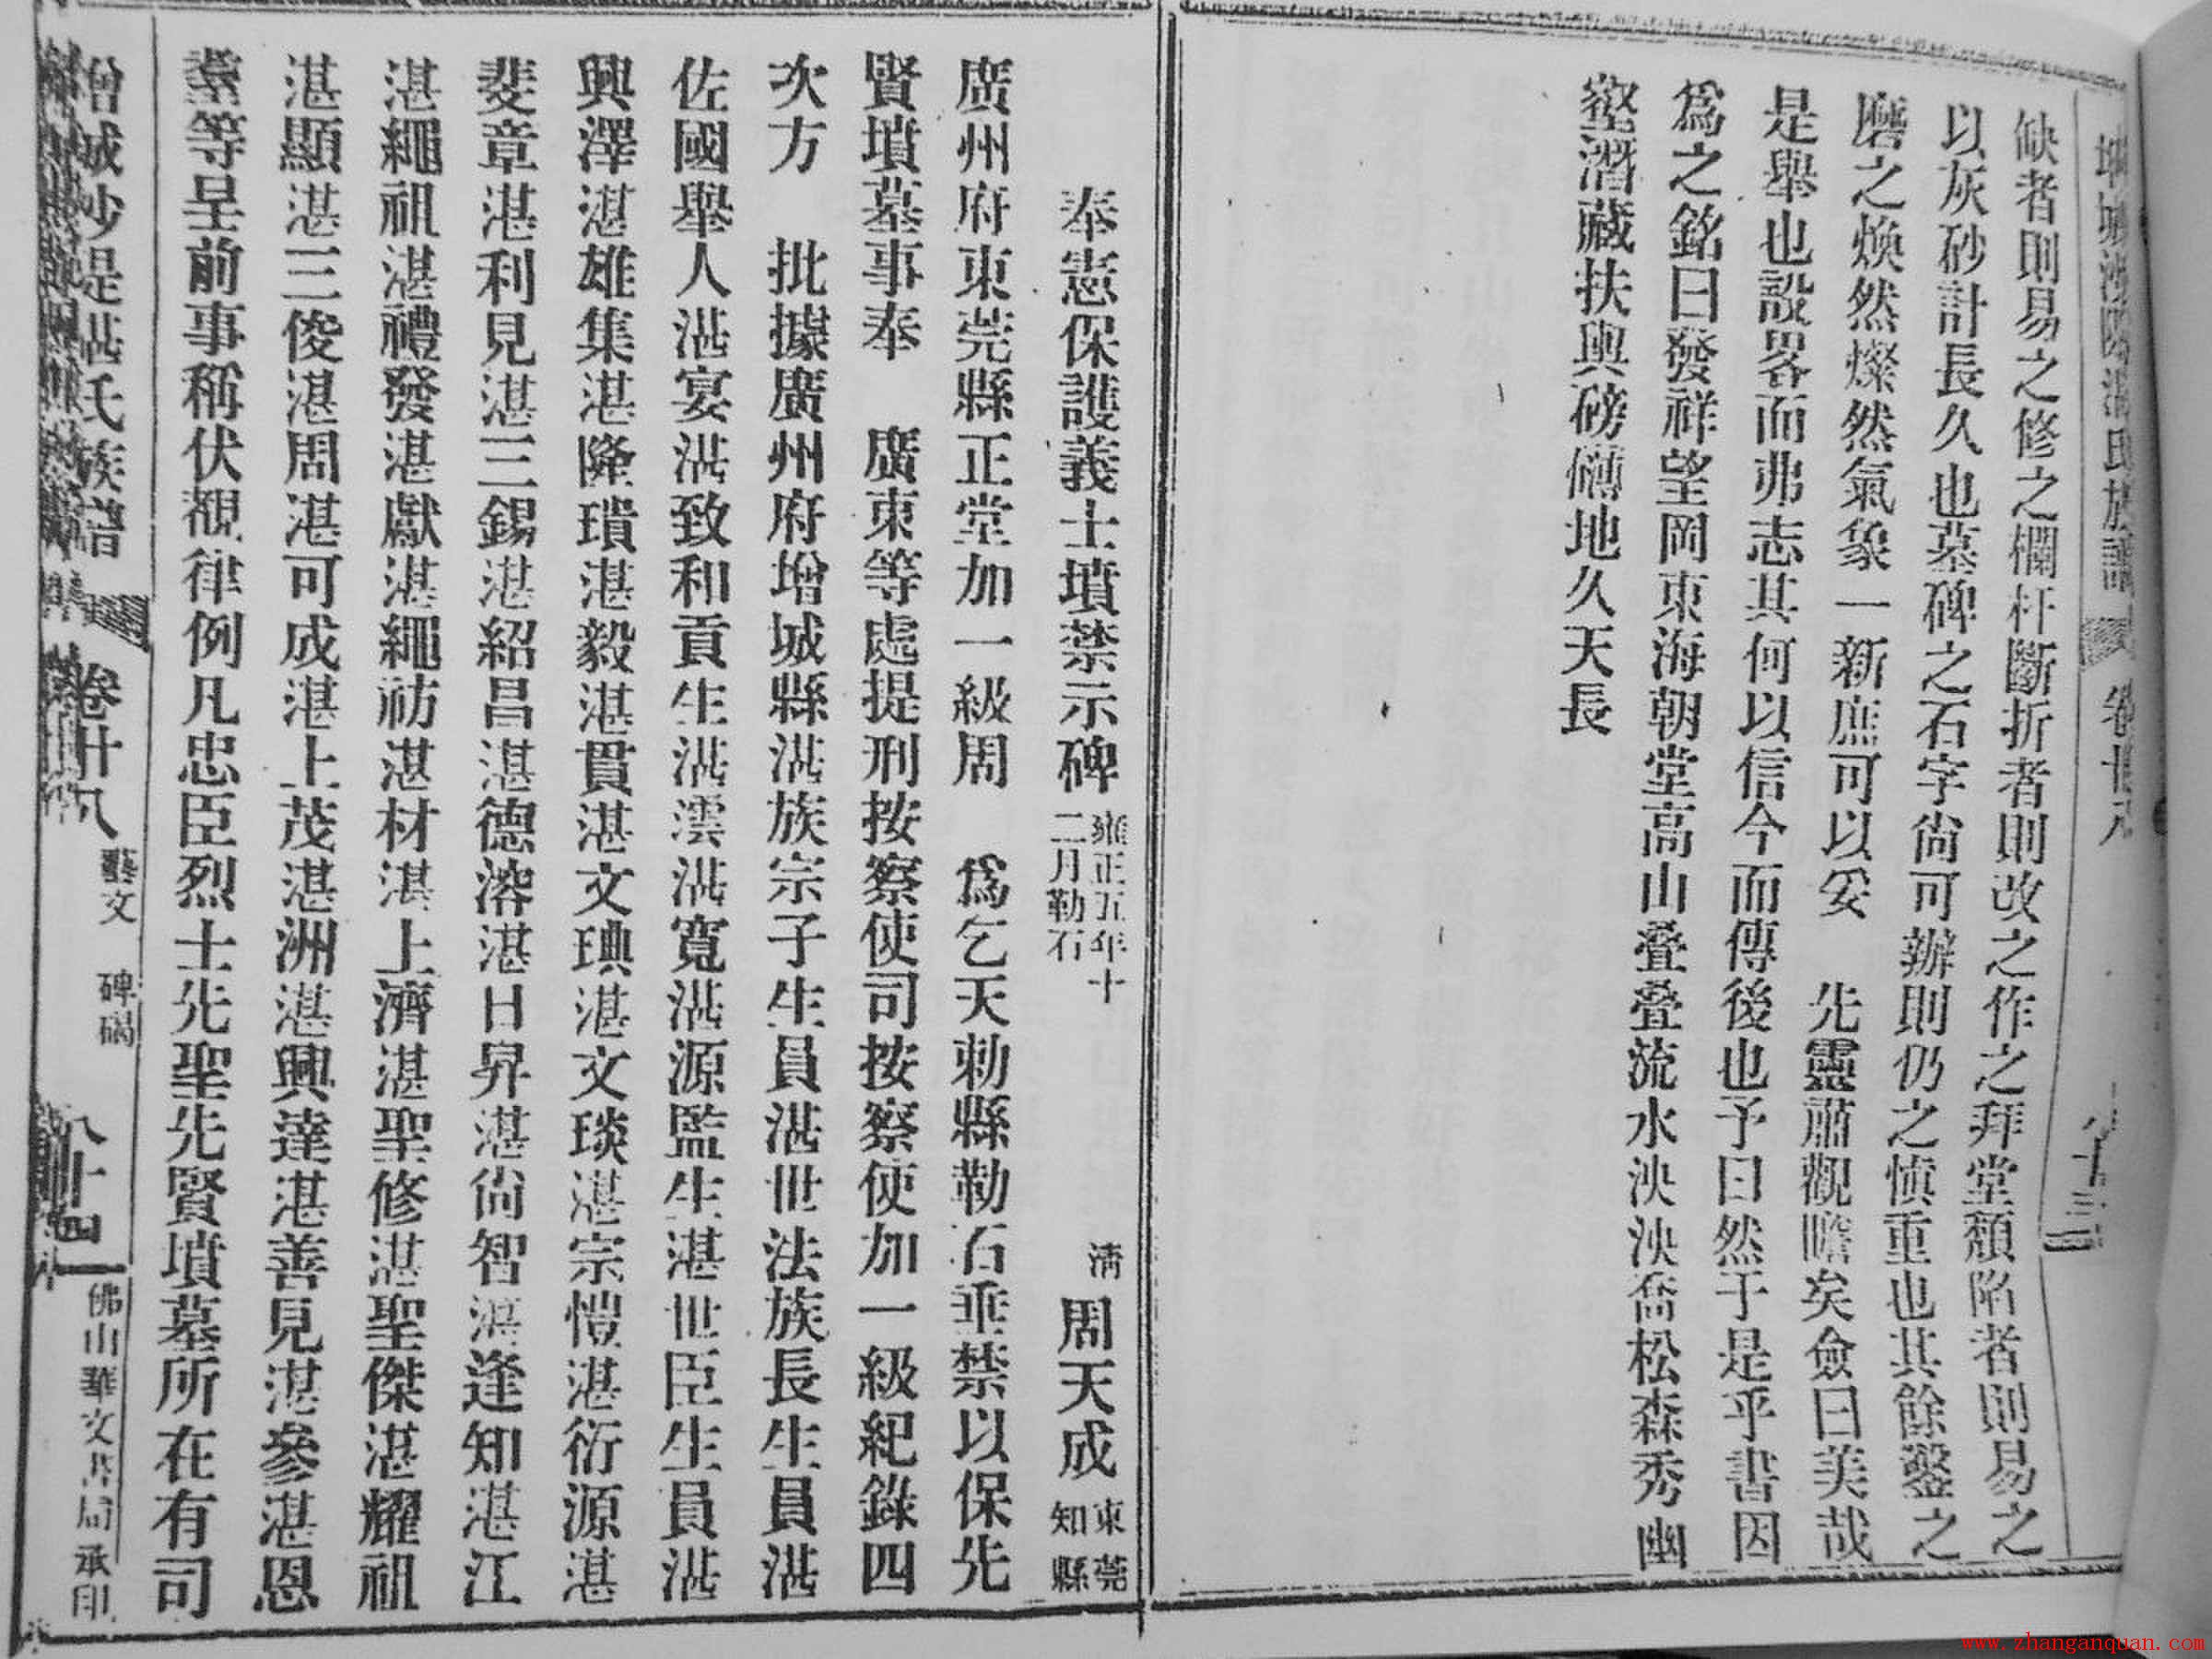 增城沙堤湛氏族譜 卷廿八 八十三
缺者則易之修之欄杆斷折者則改之作之拜堂頹陷者則易之
以灰砂計長久也墓碑之石字尙可辦則仍之愼重也其餘鑿之
磨之煥然燦然氣象一新庶可以妥 先靈肅觀瞻矣僉曰美哉
是舉也設畧而弗志其何以信今而傳後也予曰然于是乎書因
爲之銘曰發祥望岡東海朝堂高山叠叠流水泱泱喬松森秀幽
壑潛藏扶輿磅礴地久天長
奉憲保護義士墳禁示碑 雍正五年十二月勒石 淸 周天成 東莞知縣
廣州府東莞縣正堂加一級周 爲乞天勅縣勒石垂禁以保先
賢墳墓事奉 廣東等處提刑按察使司按察使加一級紀錄四
次方 批據廣州府增城縣湛族宗子生員湛世法族長生員湛
佐國舉人湛宴湛致和貢生湛澐湛寬湛源監生湛世臣生員湛
興澤湛雄集湛隆璝湛毅湛貫湛文琠湛文琰湛宗愷湛衍源湛
斐章湛利見湛三錫湛紹昌湛德溶湛日昇湛尙智湛逢知湛江
湛繩祖湛禮發湛獻湛繩祊湛材湛上濟湛聖修湛聖傑湛耀祖
湛顯湛三俊湛周湛可成湛上茂湛洲湛興達湛善見湛參湛恩
蓥等呈前事稱伏覩律例凡忠臣烈士先聖先賢墳墓所在有司
增城沙堤湛氏族譜 卷廿八 藝文 碑碣 八十四 佛山華文書局承印
www.zhanganquan.com